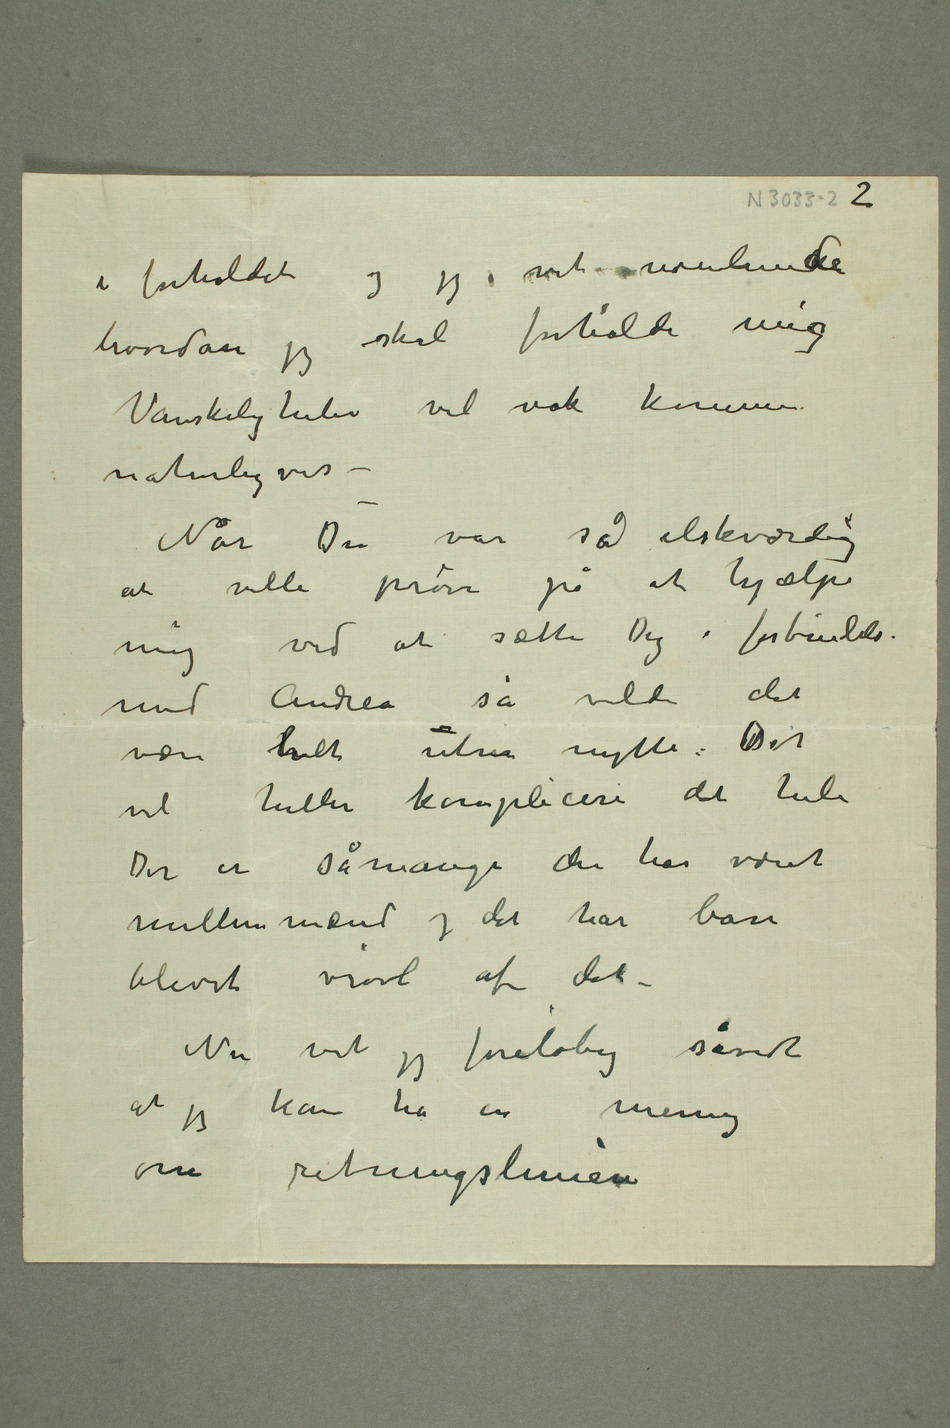 N 3033-2 2
i forholdet og jeg vet noenlunde
hvordan jeg skal forholde mig
Vanskeligheder vil nok komme
naturligvis –
Når Du var så elskværdig
at ville prøve på at hjælpe
mig ved at sætte Dig i forbindelse
med Andrea så vilde det
være helt uten nytte. Det
vil heller komplicere det hele
Der er såmange der har været
mellemmænd og det har bare
blevet vrøvl af det –
Nu vet jeg foreløbig såvidt
at jeg kan ha en mening
om retningslinien